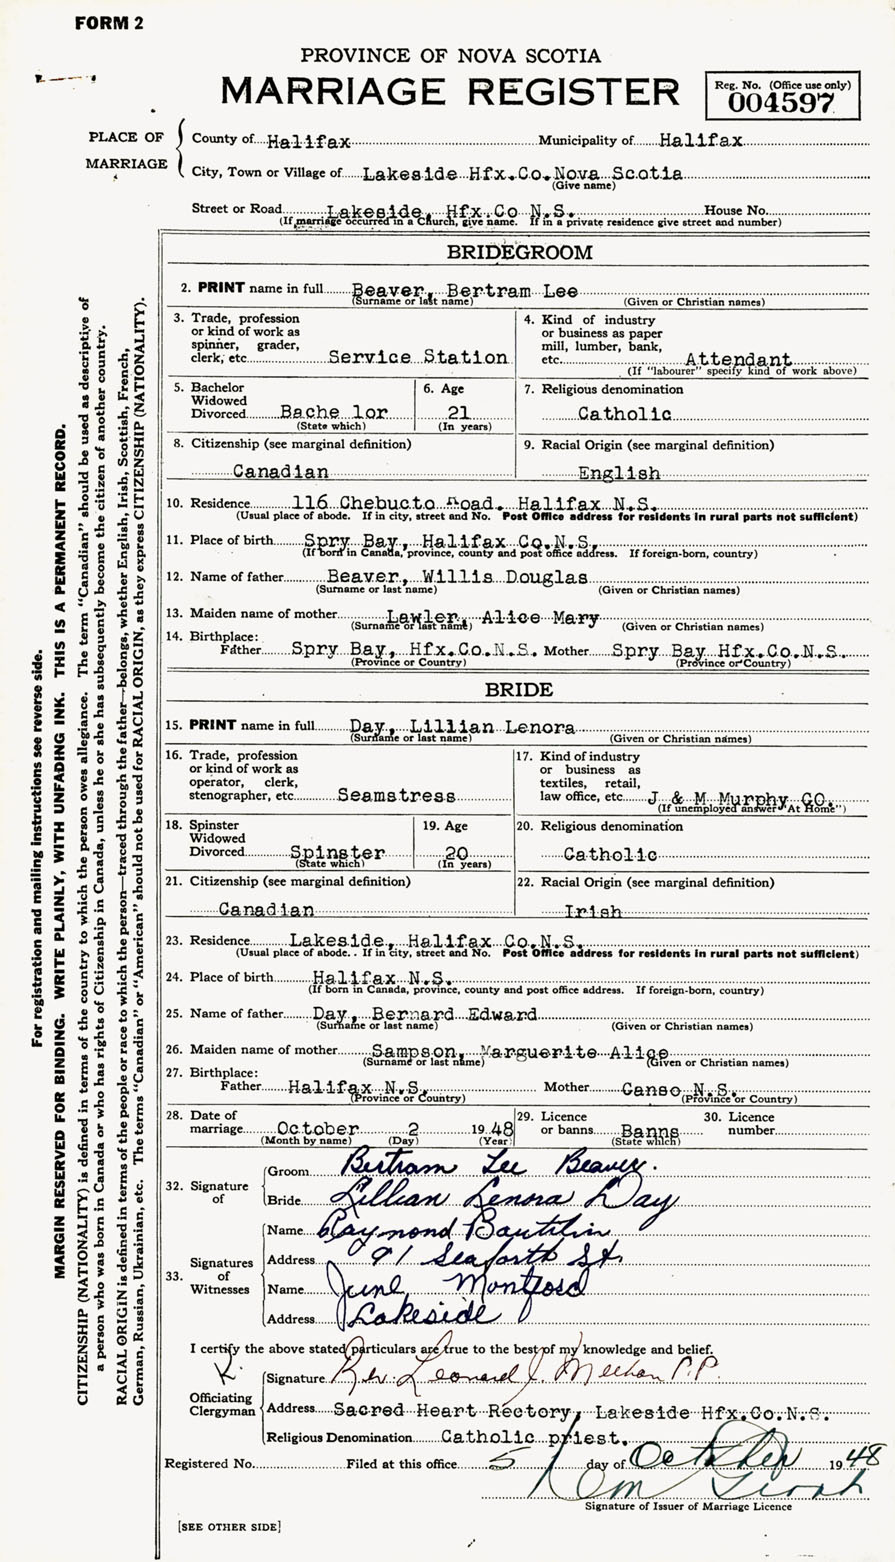 FORM 2
PROVINCE OF NOVA SCOTIA
MARRIAGE REGISTER
Reg. No. (Office use only)
004597
PLACE OF MARRIAGE
County of Halifax Municipality of Halifax
City, Town or Village of Lakeside Hfx.Co.Nova Scotia
(Give name)
Street or Road Lakeside, Hfx.Co N.S. House No.
(If marriage occurred in a Church, give name. If in a private residence give street and number)
BRIDEGROOM
2. PRINT name in full Beaver, Bertram Lee
(Surname or last name) (Given or Christian names)
3. Trade, profession
or kind of work as
spinner, grader,
clerk, etc. Service Station
4. Kind of industry
or business as paper
mill, lumber, bank,
etc. Attendant
(If "labourer" specify kind of work above)
5. Bachelor
Widowed
Divorced Bache lor
(State which)
6. Age
21
(In years)
7. Religious denomination
Catholic
8. Citizenship (see marginal definition)
Canadian
9. Racial Origin (see marginal definition)
English
10. Residence 116 Chebucto Road. Halifax N.S.
(Usual place of abode. If in city, street and No. Post Office address for residents in rural parts not sufficient)
11. Place of birth Spry Bay, Halifax Co.N.S.
(If born in Canada, province, county and post office address. If foreign-born, country)
12. Name of father Beaver, Willis Douglas
(Surname or last name) (Given or Christian names)
13. Maiden name of mother Lawler, Alice Mary
(Surname or last name) (Given or Christian names)
14. Birthplace:
Father Spry Bay, Hfx.Co.N.S. Mother Spry Bay Hfx.Co.N.S.
(Province or Country) (Province or Country)
BRIDE
15. PRINT name in full Day, Lillian Lenora
(Surname or last name) (Given or Christian names)
16. Trade, profession
or kind of work as
operator, clerk,
stenographer, etc. Seamstress
17. Kind of industry
or business as
textiles, retail,
law office, etc. J. & M Murphy CO.
(If unemployed answer "At Home")
18. Spinster
Widowed
Divorced Spinster
(State which)
19. Age
20
(In years)
20. Religious denomination
Catholic
21. Citizenship (see marginal definition)
Canadian
22. Racial Origin (see marginal definition)
Irish
23. Residence Lakeside, Halifax Co.N.S.
(Usual place of abode. If in city, street and No. Post Office address for residents in rural parts not sufficient)
24. Place of birth Halifax N.S.
(If born in Canada, province, county and post office address. If foreign-born, country)
25. Name of father Day, Bernard Edward
(Surname or last name) (Given or Christian names)
26. Maiden name of mother Sampson, Marguerite Alice
(Surname or last name) (Given or Christian names)
27. Birthplace:
Father Halifax N.S. Mother Canso N.S.
(Province or Country) (Province or Country)
28. Date of
marriage October 2 1948
(Month by name) (Day) (Year)
29. Licence
or banns Banns
(State which)
30. Licence
number
32. Signature of
Groom Bertram Lee Beaver.
Bride Lillian Lenora Day
33. Signatures of Witnesses
Name Raymond
Address 91 Seaforth St.
Name June Montford
Address Lakeside
I certify the above stated particulars are true to the best of my knowledge and belief.
Officiating Clergyman
Signature Rev. Leonard J. Meehan P.P.
Address Sacred Heart Rectory, Lakeside Hfx.Co.N.S.
Religious Denomination Catholic priest.
Registered No. Filed at this office 5 day of October 1948
Signature of Issuer of Marriage Licence
[SEE OTHER SIDE]
For registration and mailing instructions see reverse side.
MARGIN RESERVED FOR BINDING. WRITE PLAINLY, WITH UNFADING INK. THIS IS A PERMANENT RECORD.
CITIZENSHIP (NATIONALITY) is defined in terms of the country to which the person owes allegiance. The term "Canadian" should be used as descriptive of
a person who was born in Canada or who has rights of Citizenship in Canada, unless he or she has subsequently become the citizen of another country.
RACIAL ORIGIN is defined in terms of the people or race to which the person—traced through the father—belongs, whether English, Irish, Scottish, French,
German, Russian, Ukrainian, etc. The terms "Canadian" or "American" should not be used for RACIAL ORIGIN, as they express CITIZENSHIP (NATIONALITY).